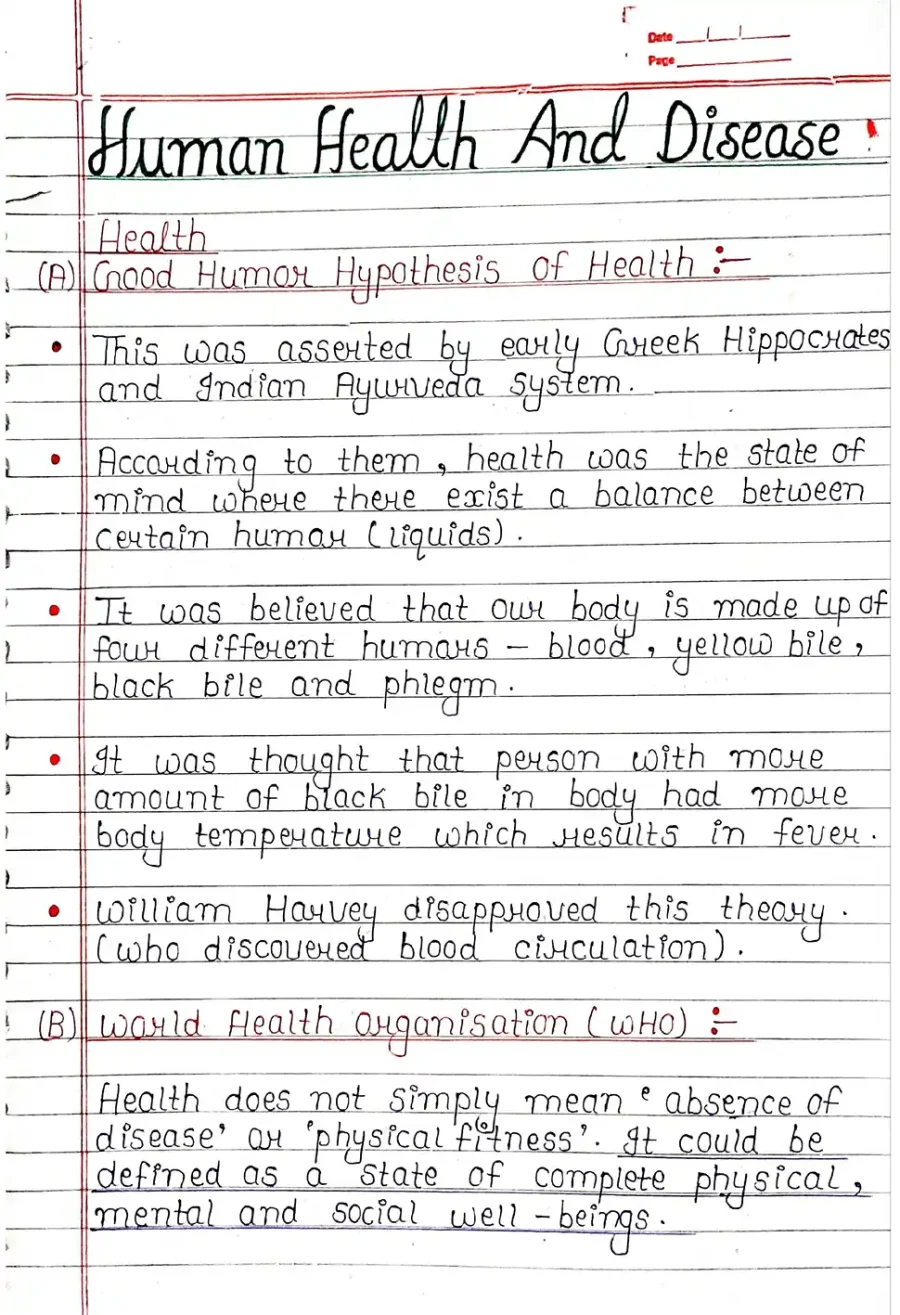 Date
Page
Human Health And Disease
Health
(A) Good Humor Hypothesis of Health :-
• This was asserted by early Greek Hippocrates
and Indian Ayurveda System.
• According to them, health was the state of
mind where there exist a balance between
certain humar (liquids).
• It was believed that our body is made up of
four different humars - blood, yellow bile,
black bile and phlegm.
• It was thought that person with more
amount of black bile in body had more
body temperature which results in fever.
• William Harvey disapproved this theory.
(who discovered blood circulation).
(B) World Health Organisation (WHO) :-
Health does not simply mean ' absence of
disease' or 'physical fitness'. It could be
defined as a state of complete physical,
mental and social well-beings.